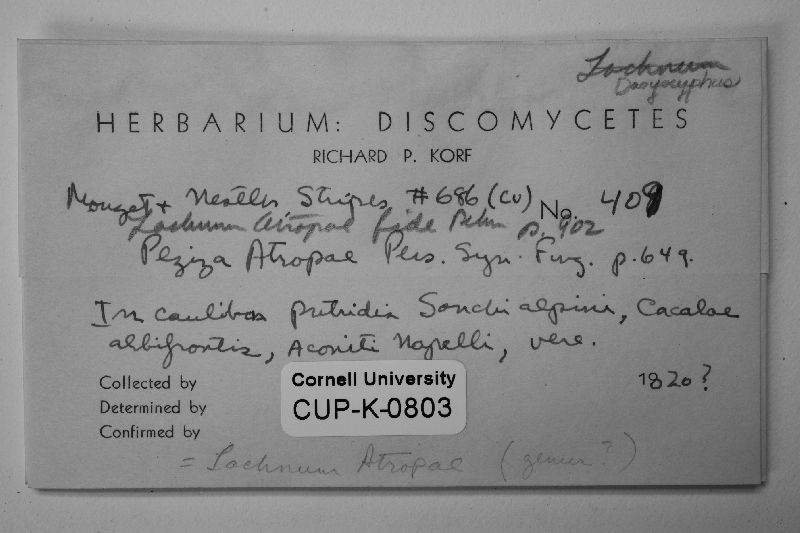 Lachnum
Dasyscyphus
HERBARIUM: DISCOMYCETES
RICHARD P. KORF
Mouget + Nestler Stirpes #686 (CU) No. 409
Lachnum Atropae fide Rehm p. 902
Peziza Atropae Pers. Syn. Fung. p.649.
In caulibus putridis Sonchi alpini, Cacaliae
albifrontis, Aconiti Napelli, vere.
Collected by 1820?
Determined by
Confirmed by
Cornell University
CUP-K-0803
= Lachnum Atropae (genus?)